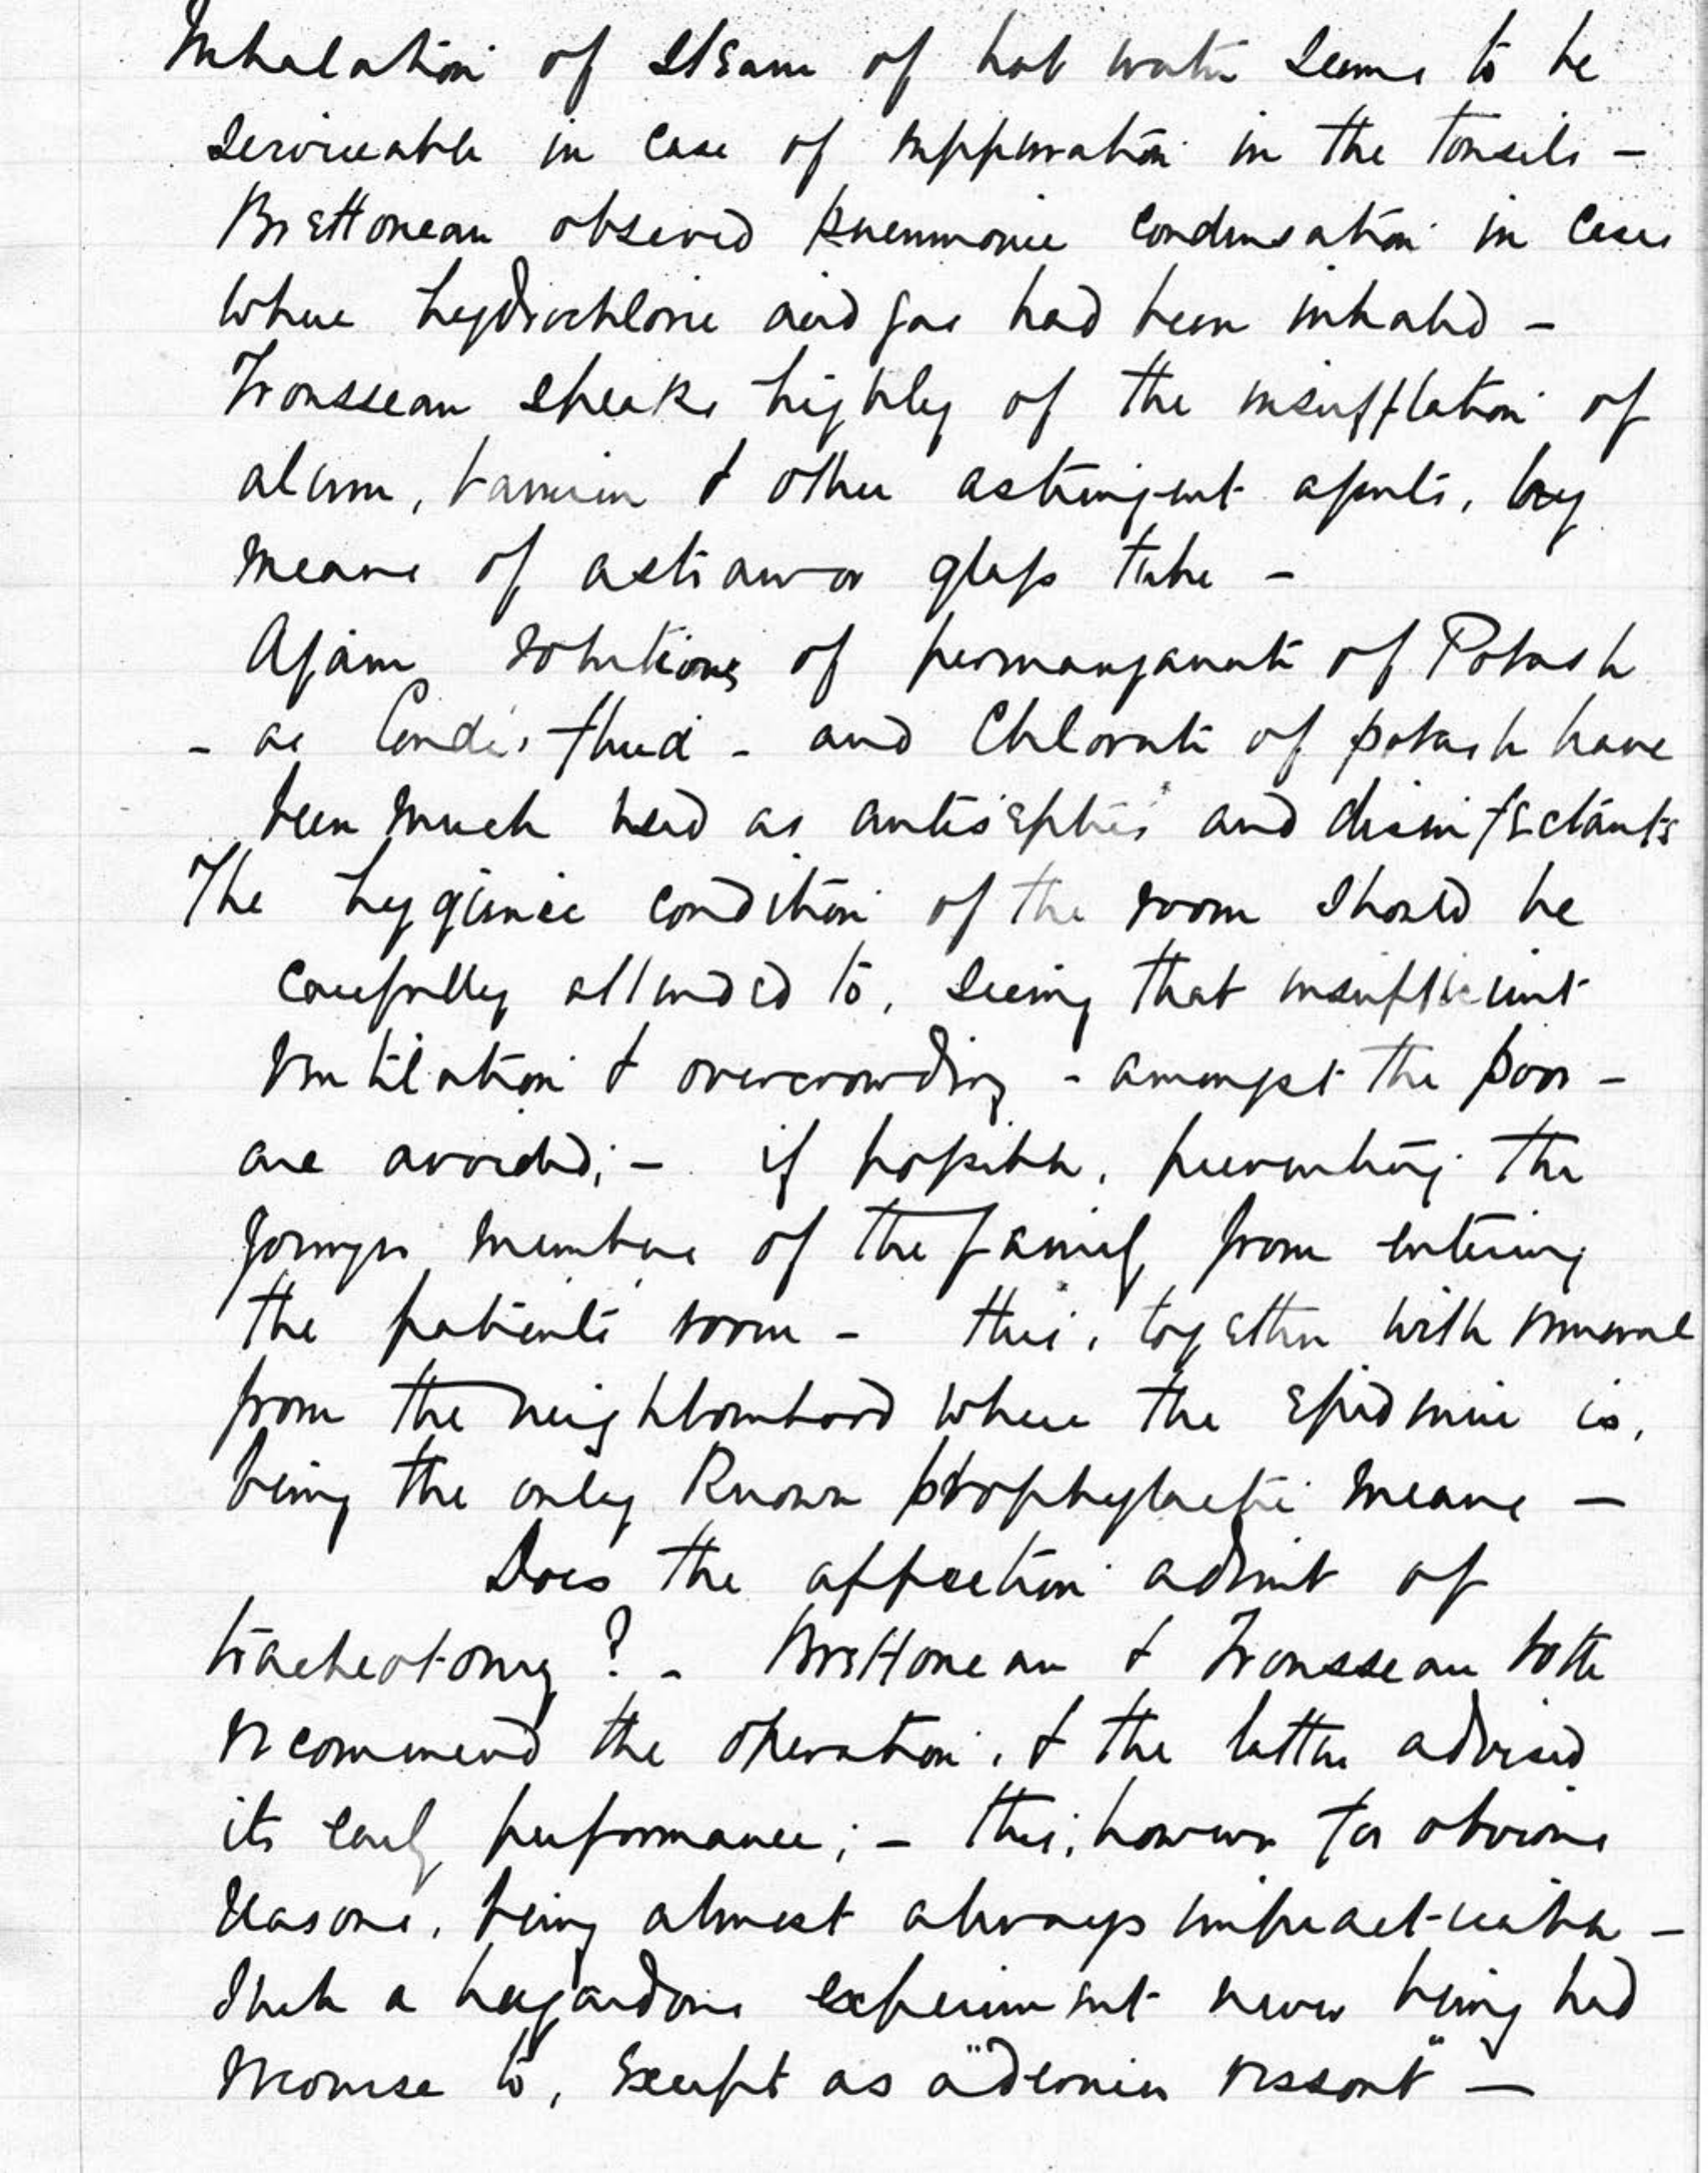 Inhalation of steam of hot water seems to be
serviceable in case of suppuration in the tonsils -
Brettoneau observed pneumonic condensation in cases
where hydrochloric acid gas had been inhaled -
Trousseau speaks highly of the insufflation of
alum, tannin & other astringent agents, by
means of a straw or glass tube -
Again solutions of permanganate of Potash
- as Condi's fluid - and Chlorate of potash have
been much used as antiseptics and disinfectants
The hygienic condition of the room should be
carefully attended to, seeing that insufficient
ventilation & overcrowding - amongst the poor -
are avoided; - if possible, preventing the
younger members of the family from entering
the patients room - this, together with removal
from the neighbourhood where the epidemic is,
being the only known prophylactic means -
Does the affection admit of
tracheotomy? - Brettoneau & Trousseau both
recommend the operation, & the latter advised
its early performance; - this, however for obvious
reasons, being almost always impracticable -
Such a hazardous experiment never being had
recourse to, except as a "dernier ressort" -